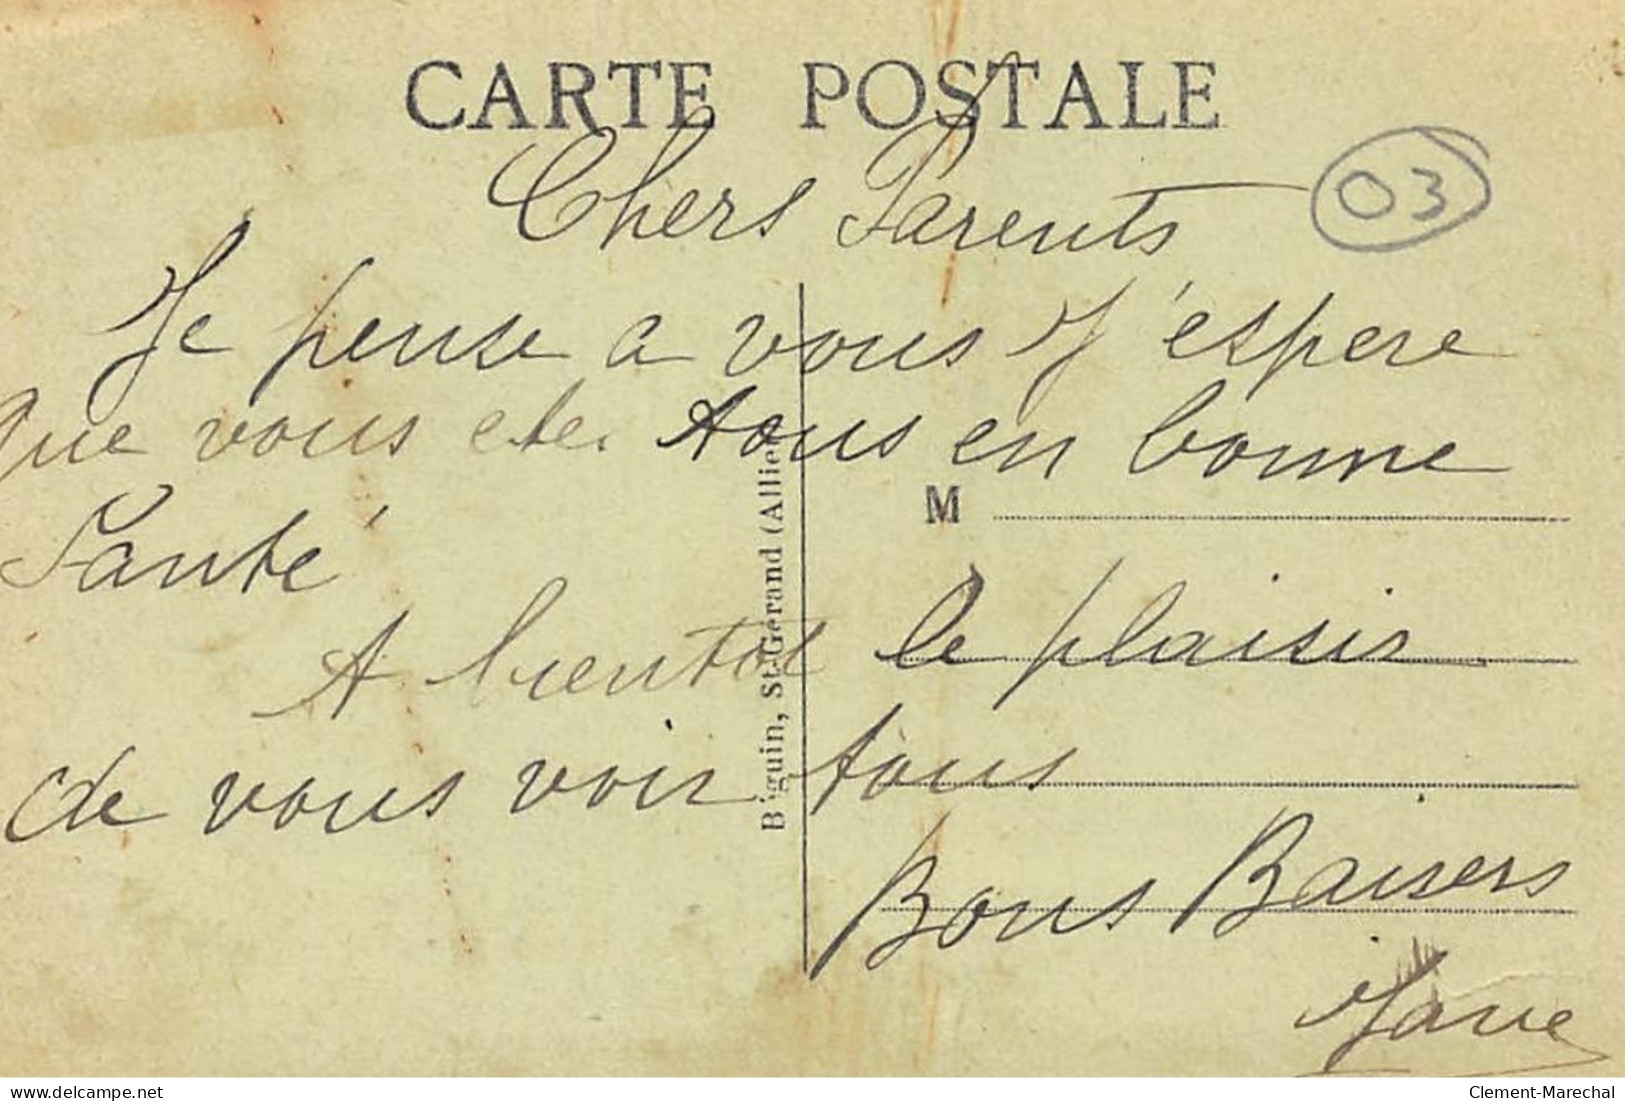 CARTE POSTALE
Chers Parents
03
Je pense a vous J'espere
que vous ete tous en bonne
Santé
M
A bientot le plaisir
de vous voir tous
Bons Baisers
Biguin, St-Gérand (Allier)
delcampe.net
Clement-Marechal